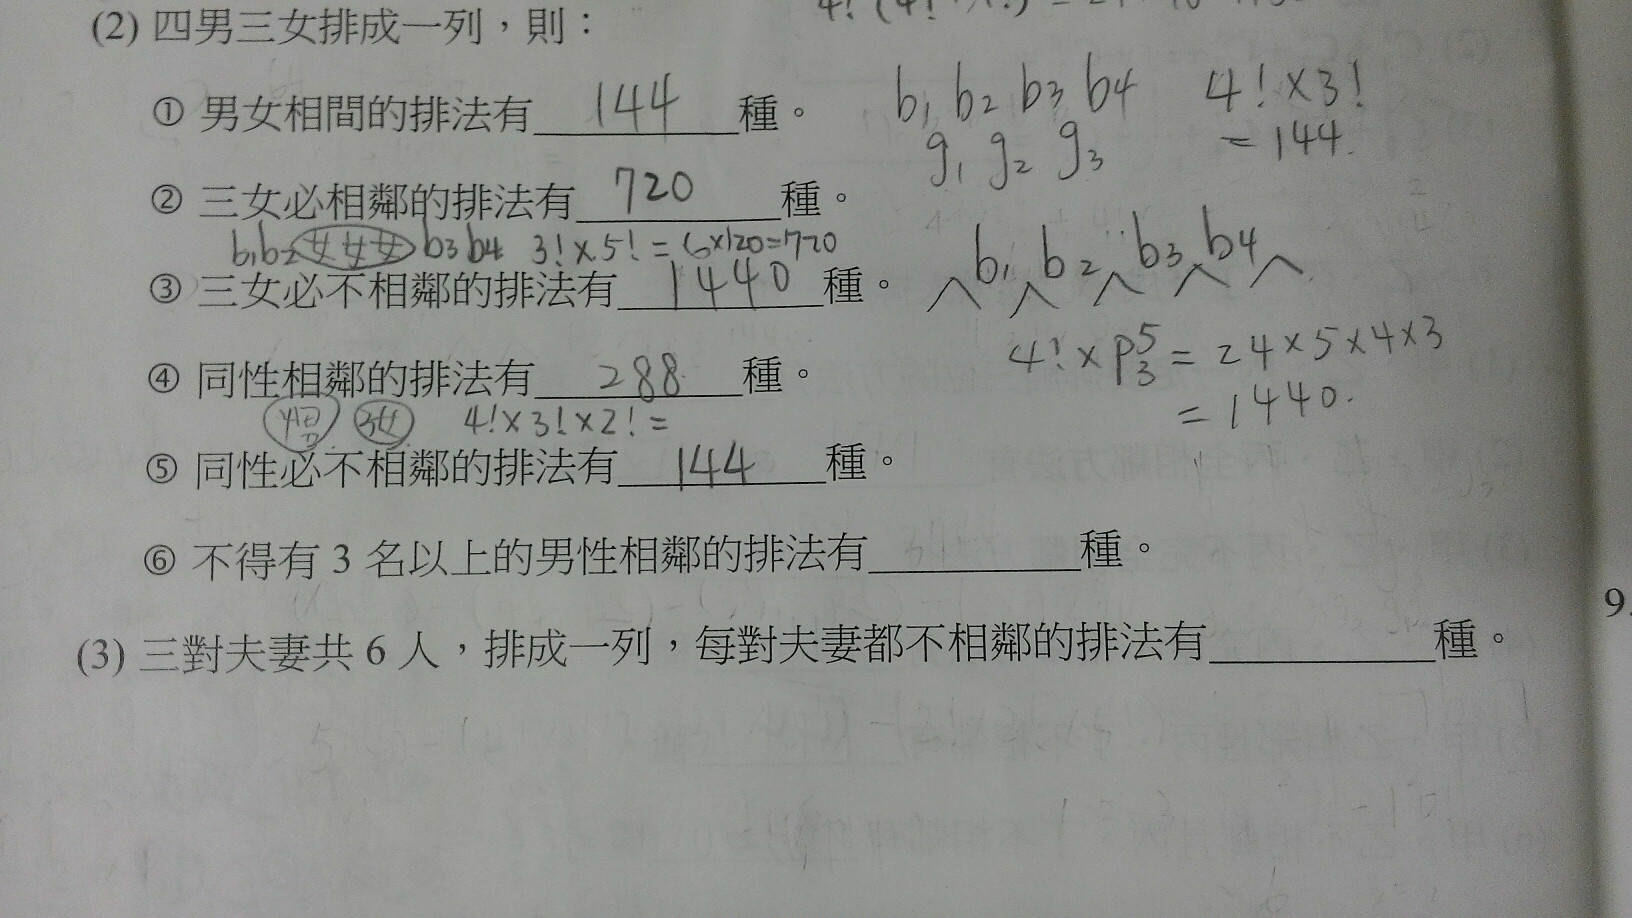 (2) 四男三女排成一列，則：
① 男女相間的排法有 144 種。
b1 b2 b3 b4 4! × 3!
g1 g2 g3 = 144.
② 三女必相鄰的排法有 720 種。
b1b2 女女女 b3 b4 3! × 5! = 6×120=720
③ 三女必不相鄰的排法有 1440 種。
b1 b2 b3 b4
4! × P⁵₃ = 24×5×4×3
= 1440.
④ 同性相鄰的排法有 288 種。
4男 3女 4!×3!×2! =
⑤ 同性必不相鄰的排法有 144 種。
⑥ 不得有 3 名以上的男性相鄰的排法有 種。
(3) 三對夫妻共 6 人，排成一列，每對夫妻都不相鄰的排法有 種。
9.